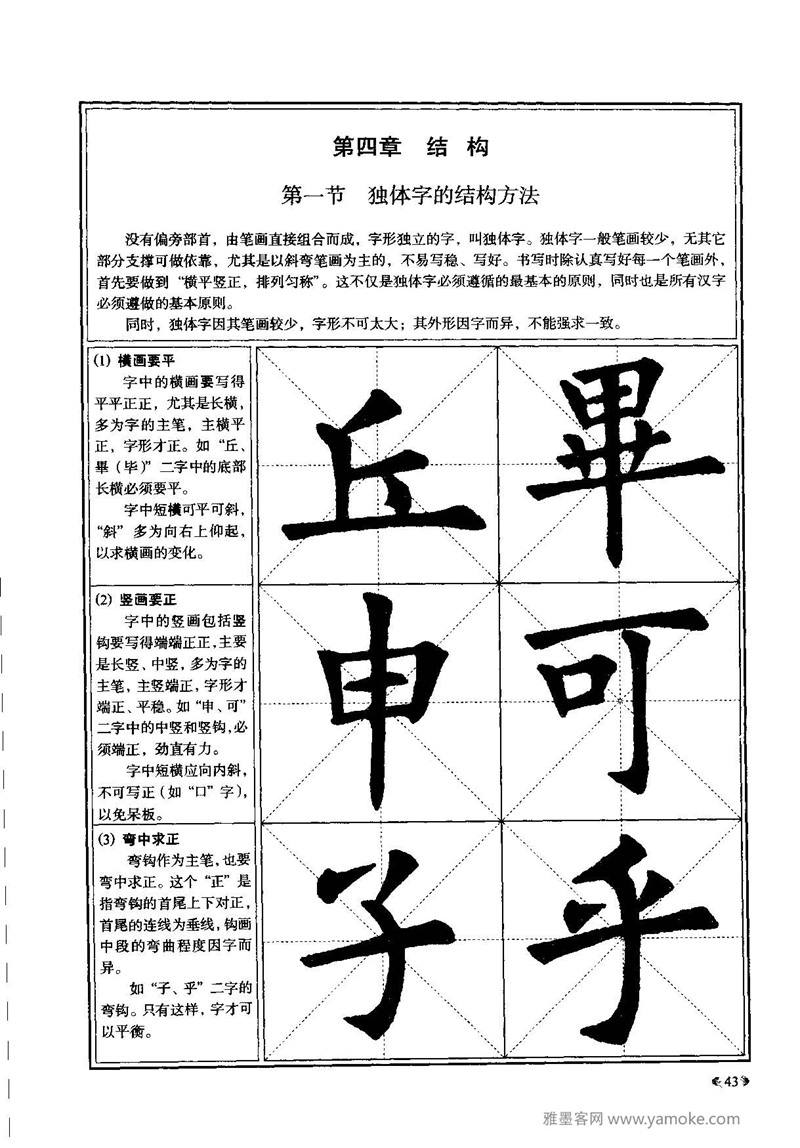 第四章 结 构
第一节 独体字的结构方法
没有偏旁部首，由笔画直接组合而成，字形独立的字，叫独体字。独体字一般笔画较少，无其它
部分支撑可做依靠，尤其是以斜弯笔画为主的，不易写稳、写好。书写时除认真写好每一个笔画外，
首先要做到“横平竖正，排列匀称”。这不仅是独体字必须遵循的最基本的原则，同时也是所有汉字
必须遵做的基本原则。
同时，独体字因其笔画较少，字形不可太大；其外形因字而异，不能强求一致。
(1) 横画要平
字中的横画要写得
平平正正，尤其是长横，
多为字的主笔，主横平
正，字形才正。如“丘、
畢（毕）”二字中的底部
长横必须要平。
字中短横可平可斜，
“斜”多为向右上仰起，
以求横画的变化。
丘 畢
(2) 竖画要正
字中的竖画包括竖
钩要写得端端正正，主要
是长竖、中竖，多为字的
主笔，主竖端正，字形才
端正、平稳。如“申、可”
二字中的中竖和竖钩，必
须端正，劲直有力。
字中短横应向内斜，
不可写正（如“口”字），
以免呆板。
申 可
(3) 弯中求正
弯钩作为主笔，也要
弯中求正。这个“正”是
指弯钩的首尾上下对正，
首尾的连线为垂线，钩画
中段的弯曲程度因字而
异。
如“子、乎”二字的
弯钩。只有这样，字才可
以平衡。
子 乎
43
雅墨客网 www.yamoke.com